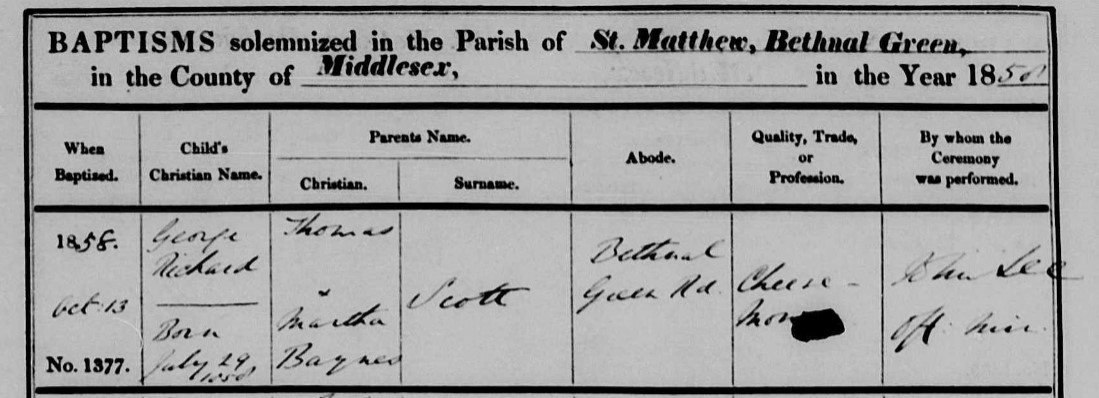 BAPTISMS solemnized in the Parish of St. Matthew, Bethnal Green,
in the County of Middlesex, in the Year 1858
When Baptised.
Child's Christian Name.
Parents Name.
Christian.
Surname.
Abode.
Quality, Trade, or Profession.
By whom the Ceremony was performed.
1858.
Oct. 13
No. 1377.
George
Richard
Born
July 29
1858
Thomas
Martha
Baynes
Scott
Bethnal
Green Rd.
Cheese-
John Lee
Off. Min.